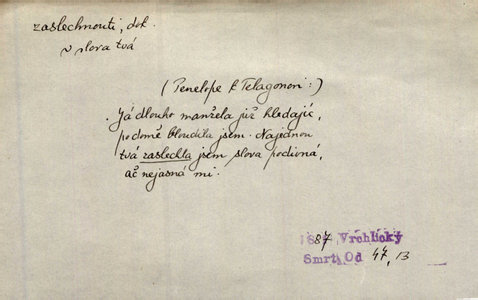 zaslechnouti, dok.
v slova tvá
(Penelope k Telagonovi:)
Já dlouho manžela již hledajíc,
po domě bloudila jsem. Najednou
tvá zaslechla jsem slova podivná,
ač nejasná mi.
1887 Vrchlický
Smrt Od 47, 13